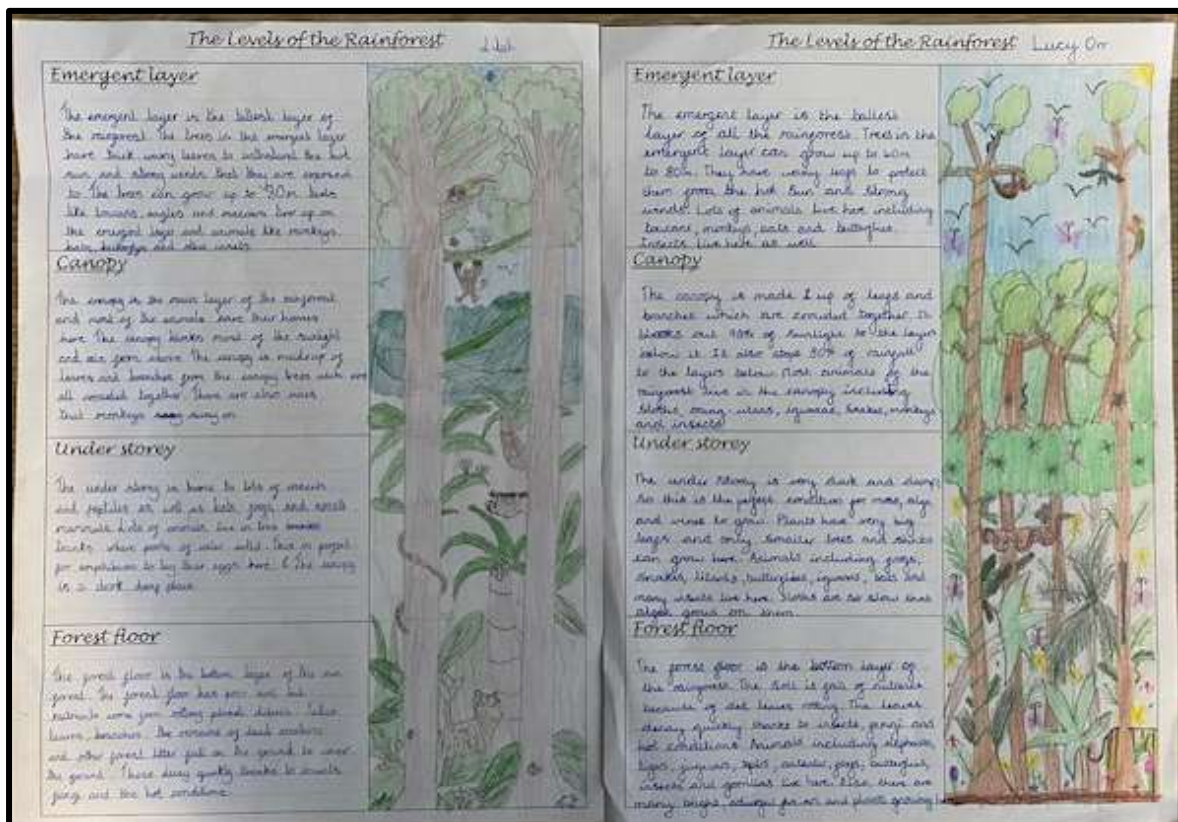 The Levels of the Rainforest
Emergent layer
The emergent layer is the tallest layer of
the rainforest. The trees in the emergent layer
have thick waxy leaves to withstand the hot
sun and strong winds that they are exposed
to. The trees can grow up to 70m. birds
like toucans, eagles and macaws live up on
the emergent layer and animals like monkeys
bats, butterflys and other insects.
Canopy
The canopy is the main layer of the rainforest
and most of the animals have their homes
here. The canopy blocks most of the sunlight
and rain from above. The canopy is made up of
leaves and branches from the canopy trees which are
all crowded together. There are also vines
that monkeys swing on.
Under storey
The under storey is home to lots of insects
and reptiles as well as bats, frogs and small
mammals. Lots of animals live in tree
trunks where pools of water This is perfect
for amphibians to lay their eggs here. The canopy
is a dark damp place.
Forest floor
The forest floor is the bottom layer of the rain
forest. The forest floor has poor soil but
nutrients come from rotting plants debris. Fallen
leaves, branches, the remains of dead animals
and other forest litter fall on the ground to cover
the ground. These decay quickly thanks to animals
fungi and the hot conditions.
The Levels of the Rainforest Lucy Orr
Emergent layer
The emergent layer is the tallest
layer of all the rainforest. Trees in the
emergent layer can grow up to 60m
to 80m. They have waxy leafs to protect
them from the hot sun and strong
winds. Lots of animals live here including
toucans, monkeys, bats and butterflies.
Insects live here as well.
Canopy
The canopy is made up of leafs and
branches which are crowded together. It
blocks out 90% of sunlight to the layers
below it. It also stops 80% of rainfall
to the layers below. Most animals of the
rainforest live in the canopy including
sloths, orang utans, iguanas, snakes, monkeys
and insects.
Under storey
The under storey is very dark and damp
so this is the perfect condition for moss, algae
and vines to grow. Plants have very big
leafs and only smaller trees and bushes
can grow here. Animals including frogs,
snakes, lizards, butterflies, iguanas, bats and
many insects live here. Sloths are so slow that
algae grows on them.
Forest floor
The forest floor is the bottom layer of
the rainforest. The soil is full of nutrients
because of dead leaves rotting. The leaves
decay quickly thanks to insects, fungi and
hot conditions. Animals including elephants,
tigers, jaguars, tapirs, anteaters, frogs, butterflies,
insects and gorillas live here. Also, there are
many bright, colourful flowers and plants growing here.